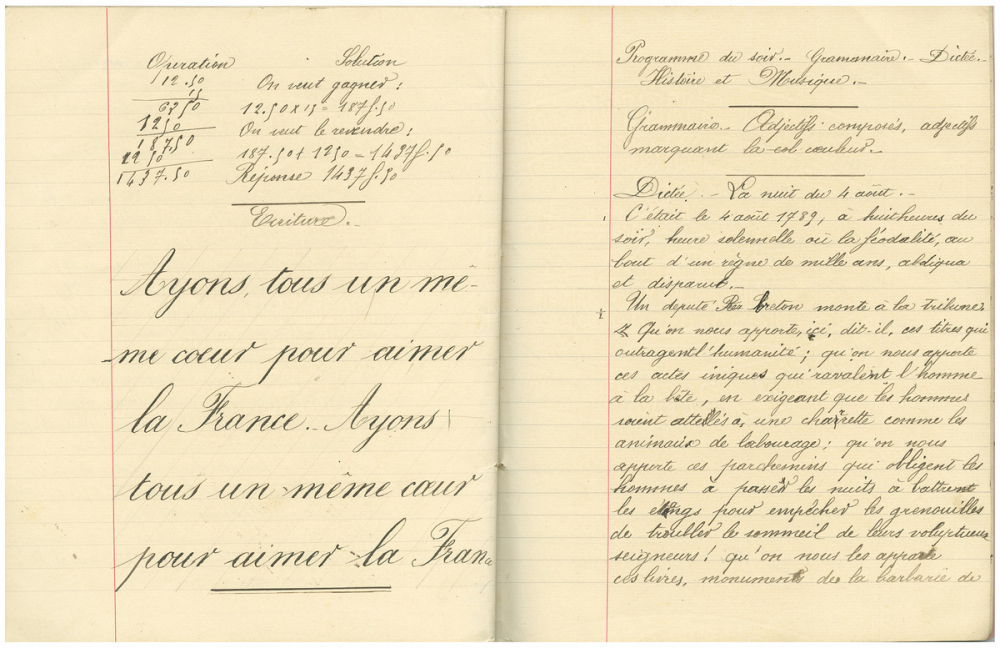 Opération Solution
12.50 On veut gagner :
15
6250 12.50 x 15 = 187f.50
1250 On veut le revendre :
187.50
1250 187.50 + 1250 = 1437f.50
1437.50 Réponse 1437f.50
Ecriture.-
Ayons tous un mê-
me coeur pour aimer
la France. Ayons
tous un même cœur
pour aimer la Franc
Programme du soir.- Grammaire.- Dictée.-
Histoire et Musique.-
Grammaire.- Adjectifs composés, adjectifs
marquant la col couleur.-
Dictée.- La nuit du 4 août.-
C'était le 4 août 1789, à huit heures du
soir, heure solennelle où la féodalité, au
bout d'un règne de mille ans, abdiqua
et disparut.-
Un député breton monte à la tribune
Qu'on nous apporte, ici, dit-il, ces titres qui
outragent l'humanité ; qu'on nous apporte
ces actes iniques qui ravalent l'homme
à la bête, en exigeant que les hommes
soient attellés à une charrette comme les
animaux de labourage ; qu'on nous
apporte ces parchemins qui obligent les
hommes à passer les nuits à battre
les etangs pour empêcher les grenouilles
de troubler le sommeil de leurs voluptueux
seigneurs ! qu'on nous les apporte
ces livres, monuments de la barbarie de